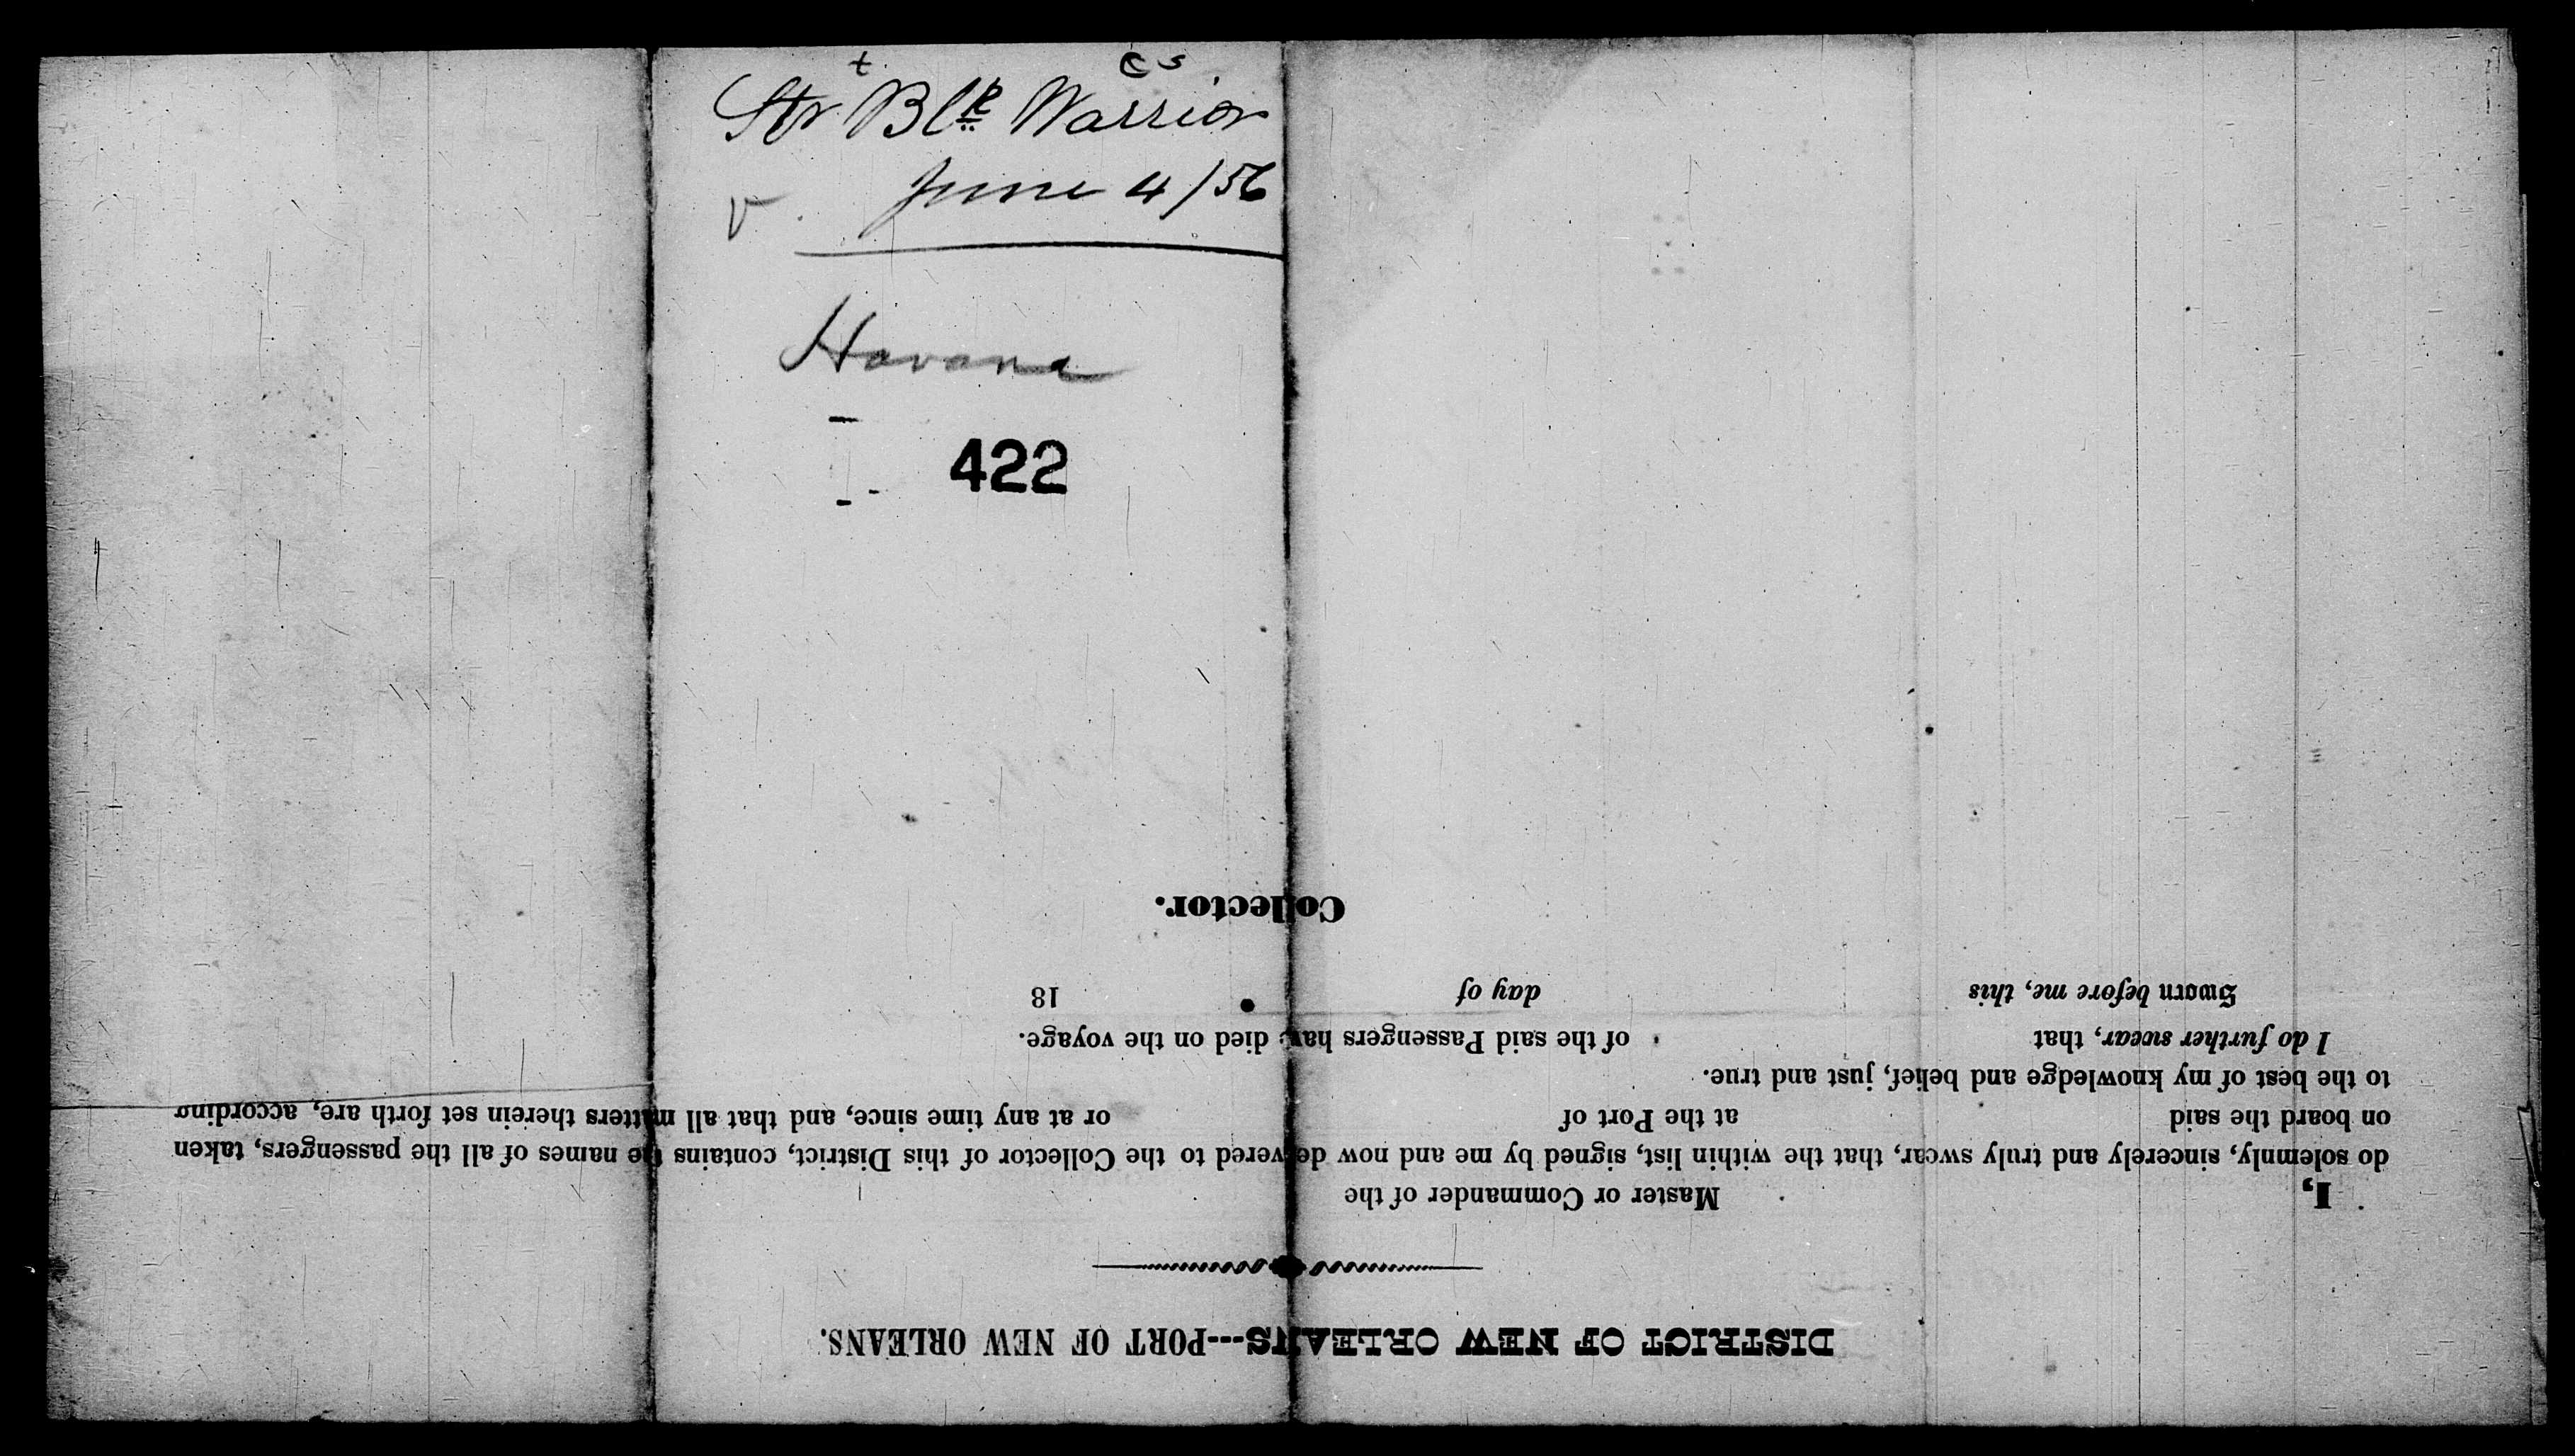 t
C S
Str Blk Warrior
June 4/56
V
Havana
422
DISTRICT OF NEW ORLEANS---PORT OF NEW ORLEANS.
I, Master or Commander of the
do solemnly, sincerely and truly swear, that the within list, signed by me and now delivered to the Collector of this District, contains the names of all the passengers, taken
on board the said at the Port of or at any time since, and that all matters therein set forth are, according
to the best of my knowledge and belief, just and true.
I do further swear, that of the said Passengers have died on the voyage.
Sworn before me, this day of 18
Collector.